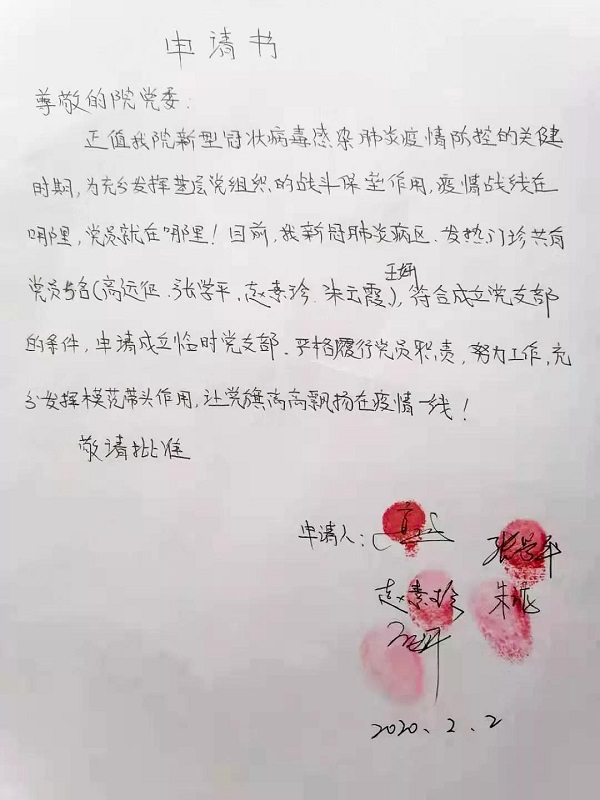 申请书
尊敬的院党委:
正值我院新型冠状病毒感染肺炎疫情防控的关健
时期,为充分发挥基层党组织的战斗保垒作用,疫情战线在
哪里,党员就在哪里!目前,我新冠肺炎病区、发热门珍共有
王妍
党员5名(高远征、张学平、赵素珍、朱云霞),符合成立党支部
的条件,申请成立临时党支部。严格履行党员职责,努力工作,充
分发挥模范带头作用,让党旗高高飘扬在疫情一线!
敬请批准
申请人:
张学平
赵素珍
2020.2.2